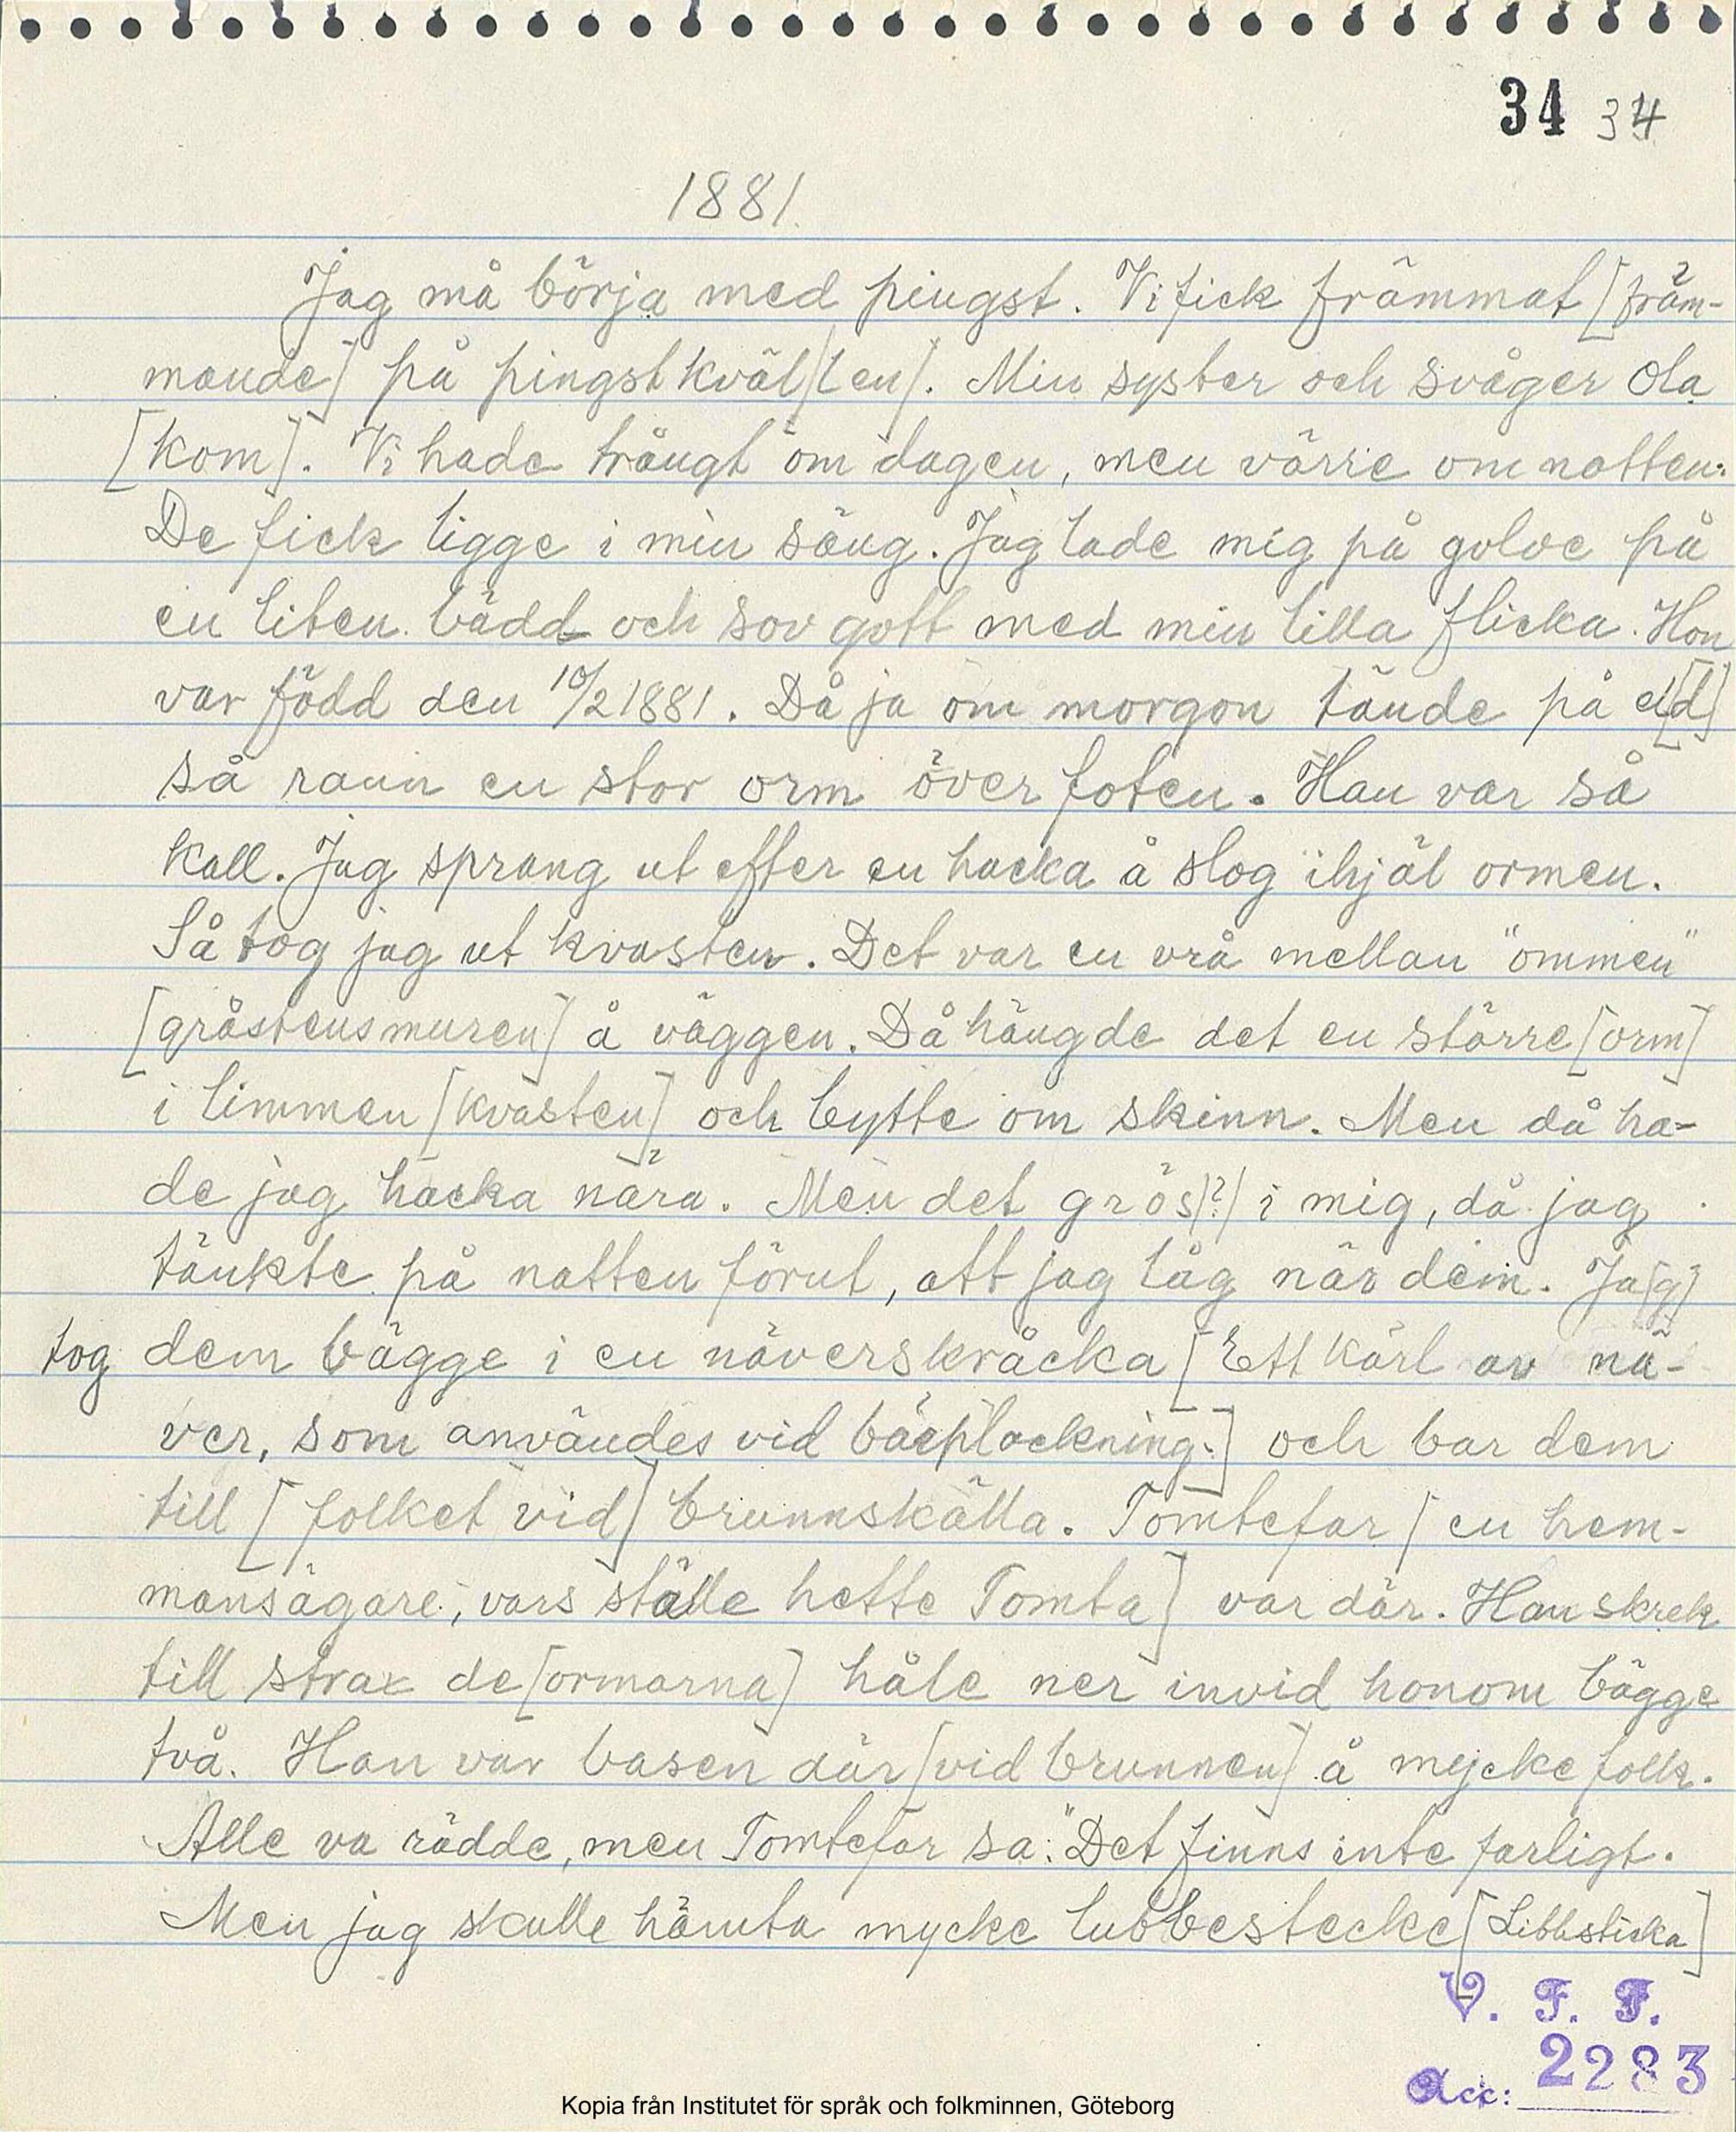 34 34
1881.
Jag må börja med pingst. Vi fick främmat [främ-
mande] på pingstkväl[len]. Min syster och svåger Ola
[kom]. Vi hade trångt om dagen, men värre om natten.
De fick ligge i min säng. Jag lade mig på golve på
en liten bädd och sov gott med min lilla flicka. Hon
var född den 10/2 1881. Då ja om morgon tände på el[d]
så rann en stor orm över foten. Han var så
kall. Jag sprang ut efter en hacka å slog ihjäl ormen.
Så tog jag ut kvasten. Det var en vrå mellan "ommen"
[gråstensmuren] å väggen. Då hängde det en större [orm]
i limmen [kvasten] och bytte om skinn. Men då ha-
de jag hacka nära. Men det grös[?] i mig, då jag
tänkte på natten förut, att jag låg när dem. Ja[g]
tog dem bägge i en näverskräcka [Ett kärl av nä-
ver, som användes vid bärplockning.] och bar dem
till [folket vid] brunnskälla. Tomtefar [en hem-
mansägare, vars ställe hette Tomta] var där. Han skrek
till strax de [ormarna] håle ner invid honom bägge
två. Han var basen där [vid brunnen] å mycke folk.
Alle va rädde, men Tomtefar sa: "Det finns inte farligt.
Men jag skulle hämta mycke lubbestecke [Libbsticka]
V. F. F.
Acc: 2283
Kopia från Institutet för språk och folkminnen, Göteborg